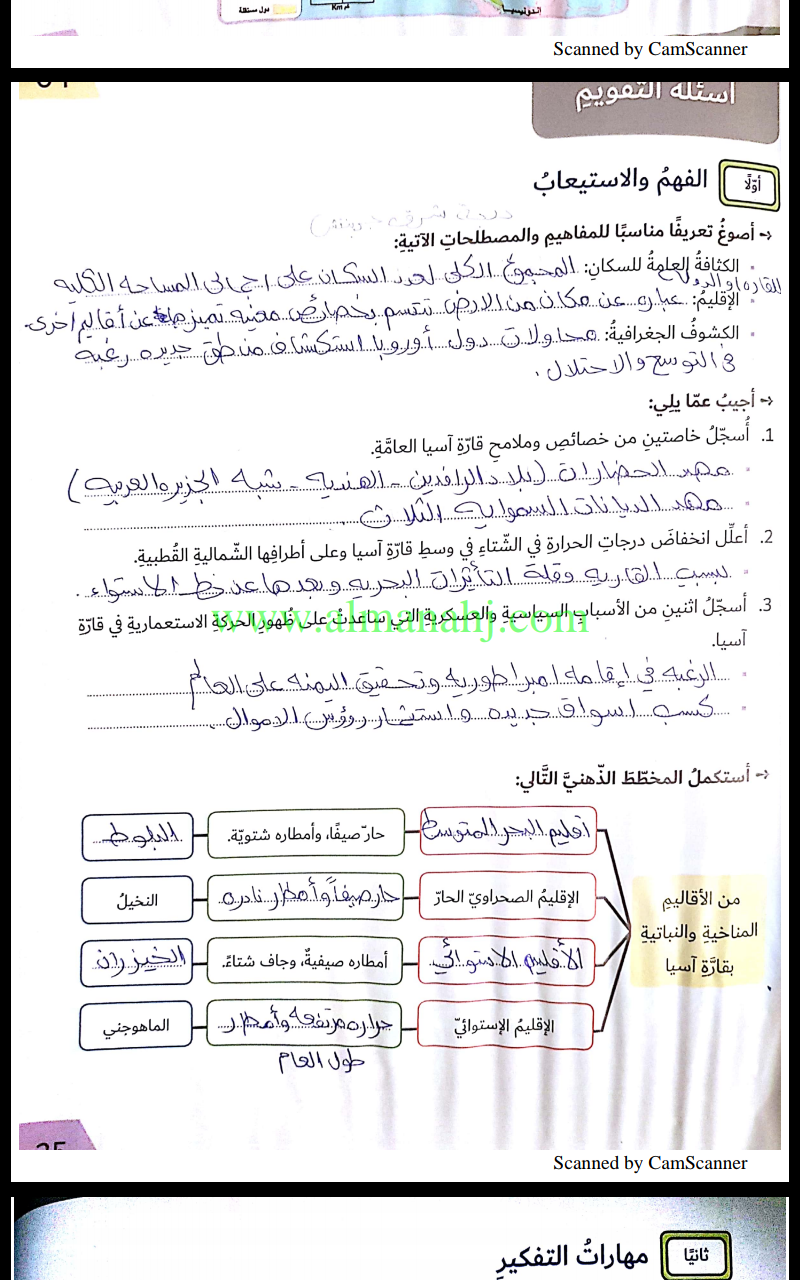 دول مستقلة
Km
إندونيسيا
Scanned by CamScanner
أسئلة التقويم
أوّلًا
الفهمُ والاستيعابُ
-> أصوغُ تعريفًا مناسبًا للمفاهيمِ والمصطلحاتِ الآتيةِ:
الكثافةُ العامةُ للسكانِ: المجموع الكلي لعدد السكان على إجمالي المساحه الكليه
القاره او الدولة
الإقليمُ: عباره عن مكان من الارض تتسم بخصائص معينه تميزها عن أقاليم اخرى.
الكشوفُ الجغرافيةُ: محاولات دول أوروبا استكشاف مناطق جديده رغبه
في التوسع والاحتلال.
-> أجيبُ عمّا يلِي:
1. أُسجّلُ خاصتينِ من خصائصِ وملامحِ قارّة آسيا العامَّةِ.
مهد الحضارات (بلاد الرافدين - الهنديه - شبه الجزيره العربيه)
مهد الديانات السماويه الثلاث.
2. أعلِّل انخفاضَ درجاتِ الحرارةِ في الشّتاءِ في وسطِ قارّة آسيا وعلى أطرافِها الشّماليةِ القُطبيةِ.
بسبب القاريه وقلة التأثيرات البحريه وبعدها عن خط الاستواء.
www.almanahj.com
3. أسجّلُ اثنينِ من الأسبابِ السياسيةِ والعسكريةِ التي ساعدتْ على ظُهورِ الحركةِ الاستعماريةِ في قارّةِ
آسيا.
الرغبه في إقامه امبراطوريه وتحقيق اليمنه على العالم
كسب اسواق جديده واستثمار رؤوس الاموال.
-> أستكملُ المخطّطَ الذّهنيَّ التَّالي:
من الأقاليمِ
المناخيةِ والنباتيةِ
بقارَّةِ آسيا
أقليم البحر المتوسط
حارّ صيفًا، وأمطاره شتويّة.
البلوط
الإقليمُ الصحراويّ الحارّ
حار صيفاً وأمطار نادره
النخيلُ
الأقليم الاستوائي
أمطاره صيفيةٌ، وجاف شتاءً.
الخيزران
الإقليمُ الإستوائيّ
حراره مرتفعه وأمطار
طول العام
الماهوجني
35
Scanned by CamScanner
ثانيًا
مهاراتُ التفكيرِ